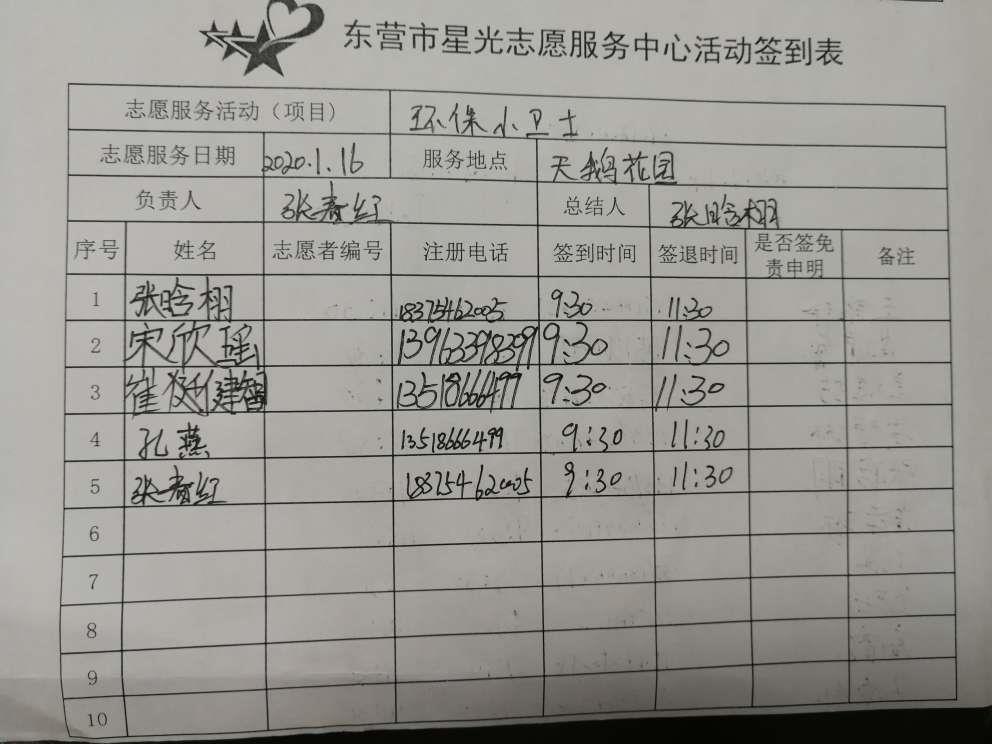 东营市星光志愿服务中心活动签到表
志愿服务活动（项目） 环保小卫士
志愿服务日期 2020.1.16 服务地点 天鹅花园
负责人 张春红 总结人 张晗栩
序号 姓名 志愿者编号 注册电话 签到时间 签退时间 是否签免责申明 备注
1 张晗栩 18375462005 9:30 11:30
2 宋欣瑶 13963398399 9:30 11:30
3 崔 健智 13518666499 9:30 11:30
4 孔燕 13518666499 9:30 11:30
5 张春红 18375462005 9:30 11:30
6
7
8
9
10